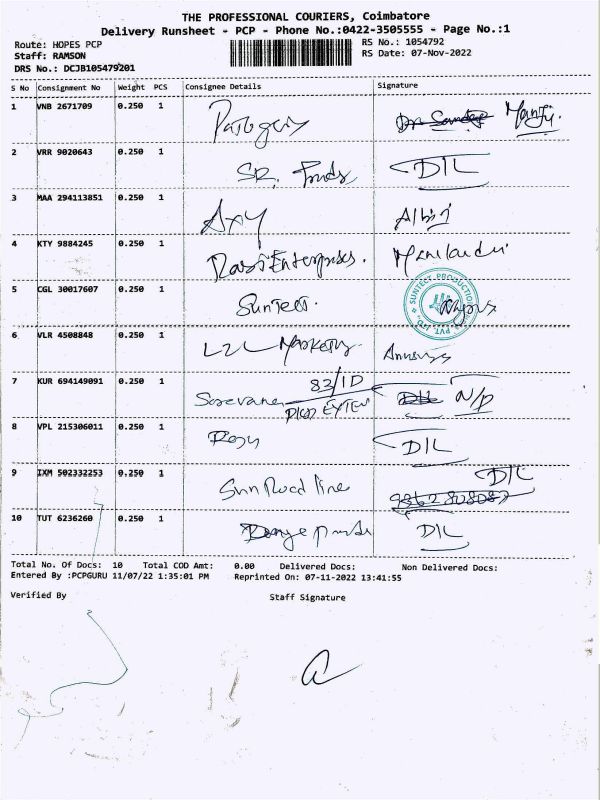 THE PROFESSIONAL COURIERS, Coimbatore
Delivery Runsheet - PCP - Phone No.:0422-3505555 - Page No.:1
Route: HOPES PCP
RS No.: 1054792
Staff: RAMSON
RS Date: 07-Nov-2022
DRS No.: DCJB105479201
S No Consignment No Weight PCS Consignee Details Signature
1 VNB 2671709 0.250 1
2 VRR 9020643 0.250 1 SR. D/L
3 MAA 294113851 0.250 1 Axy Albin
4 KTY 9884245 0.250 1 Rasi Enterprises.
5 CGL 30017607 0.250 1 Suntect.
SUNTECT PRODUCTION PVT. LTD.
6 VLR 4508848 0.250 1 Marketing
7 KUR 694149091 0.250 1 83/1D N/P
8 VPL 215306011 0.250 1 D/L
9 IXM 502332253 0.250 1 Sun Road line D/L
10 TUT 6236260 0.250 1 D/L
Total No. Of Docs: 10 Total COD Amt: 0.00 Delivered Docs: Non Delivered Docs:
Entered By :PCPGURU 11/07/22 1:35:01 PM Reprinted On: 07-11-2022 13:41:55
Verified By Staff Signature